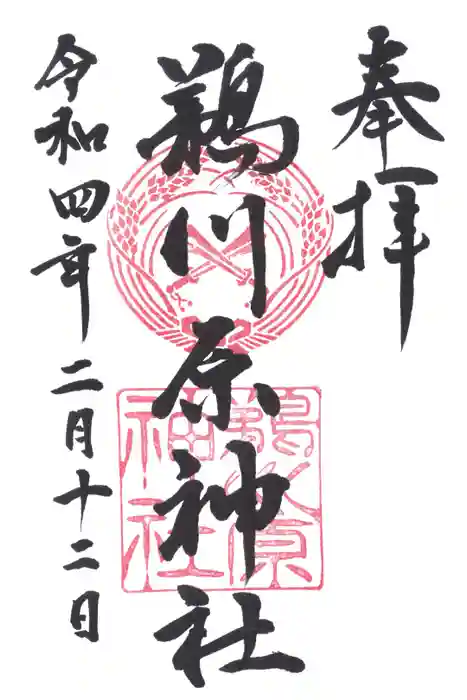 奉拝
鵜川原神社
令和四年二月十二日
鵜川原
神社